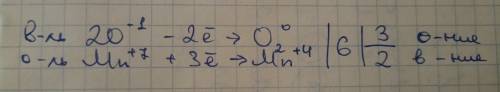 в-ль 2O⁻¹ - 2ē → O₂⁰ | 6 | 3 о-ние
о-ль Mn⁺⁷ + 3ē → Mn⁺⁴ | | 2 в-ние